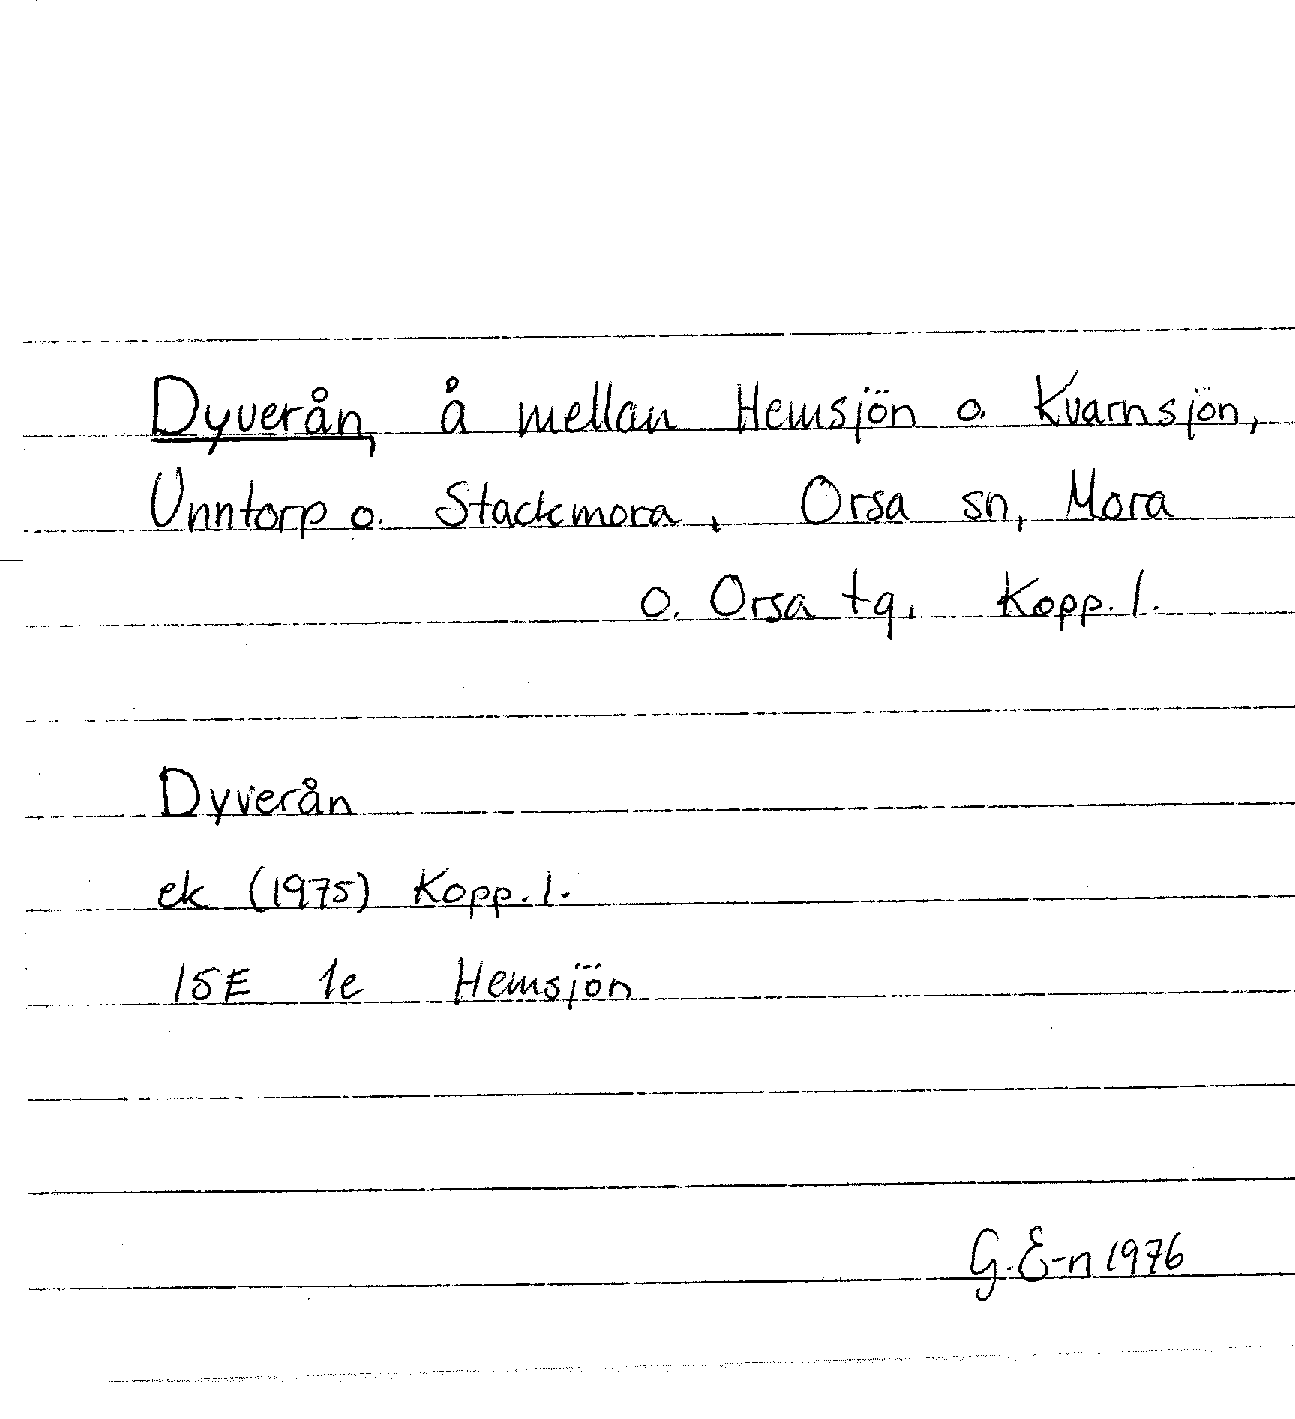 Dyverån, å mellan Hemsjön o. Kvarnsjön,
Unntorp o. Stackmora, Orsa sn, Mora
o. Orsa tg. Kopp. l.
Dyverån
ek (1975) Kopp. l.
15E 1e Hemsjön
G. E-n 1976